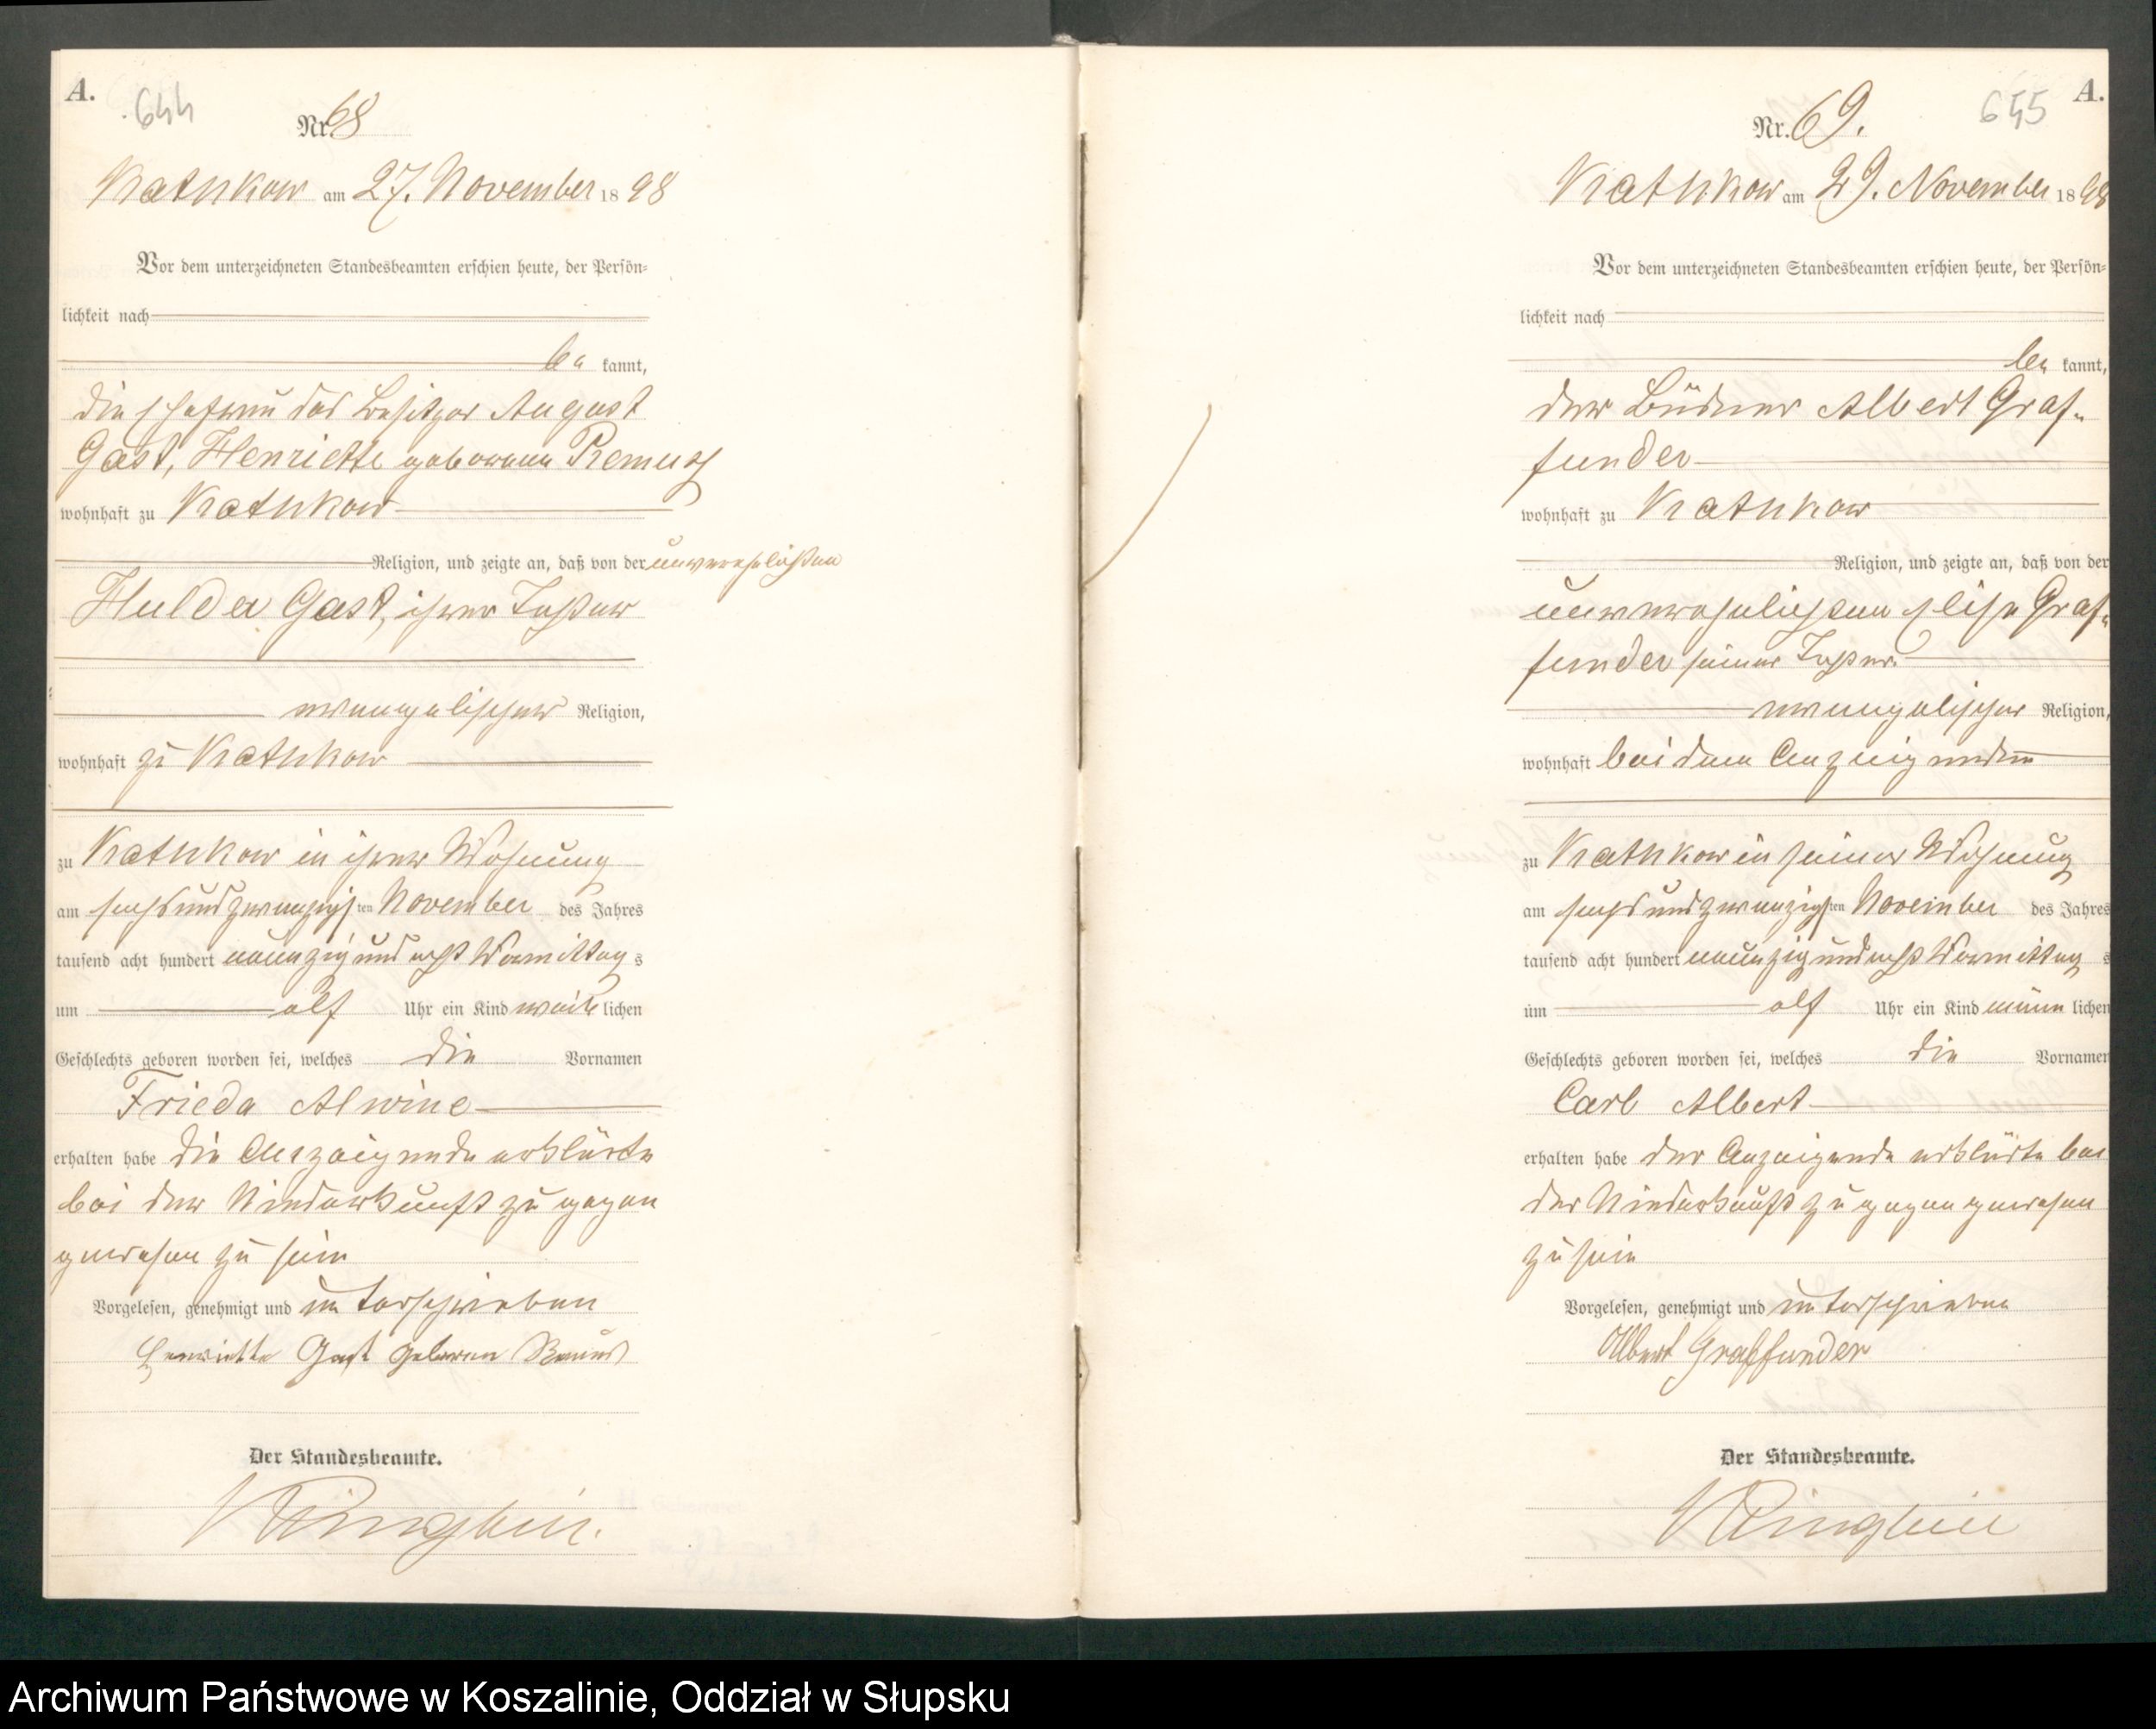 A.
644
Nr. 68
Kathkow am 27. November 1898
Vor dem unterzeichneten Standesbeamten erschien heute, der Persön=
lichkeit nach
be kannt,
die Ehefrau des Besitzer August
Gast, Henriette geborene Remus
wohnhaft zu Kathkow
Religion, und zeigte an, daß von der unverehelichten
Hulda Gast, ihrer Tochter
evangelischer Religion,
wohnhaft zu Kathkow
zu Kathkow in ihrer Wohnung
am sechsundzwanzigsten November des Jahres
tausend acht hundert neunzig und acht Vormittags
um elf Uhr ein Kind weiblichen
Geschlechts geboren worden sei, welches die Vornamen
Frieda Alwine
erhalten habe die Anzeigende erklärte
bei der Niederkunft zugegen
gewesen zu sein
Vorgelesen, genehmigt und unterschrieben
Henriette Gast geboren Remus
Der Standesbeamte.
A.
655
Nr. 69.
Kathkow am 29. November 1898
Vor dem unterzeichneten Standesbeamten erschien heute, der Persön=
lichkeit nach
be kannt,
der Büdner Albert Graf=
funder
wohnhaft zu Kathkow
Religion, und zeigte an, daß von der
unverehelichten Elise Graf=
funder seiner Tochter
evangelischer Religion,
wohnhaft bei dem Anzeigenden
zu Kathkow in seiner Wohnung
am sechsundzwanzigsten November des Jahres
tausend acht hundert neunzig und acht Vormittags
um elf Uhr ein Kind männlichen
Geschlechts geboren worden sei, welches die Vornamen
Carl Albert
erhalten habe der Anzeigende erklärte bei
der Niederkunft zugegen gewesen
zu sein
Vorgelesen, genehmigt und unterschrieben
Albert Graffunder
Der Standesbeamte.
Archiwum Państwowe w Koszalinie, Oddział w Słupsku